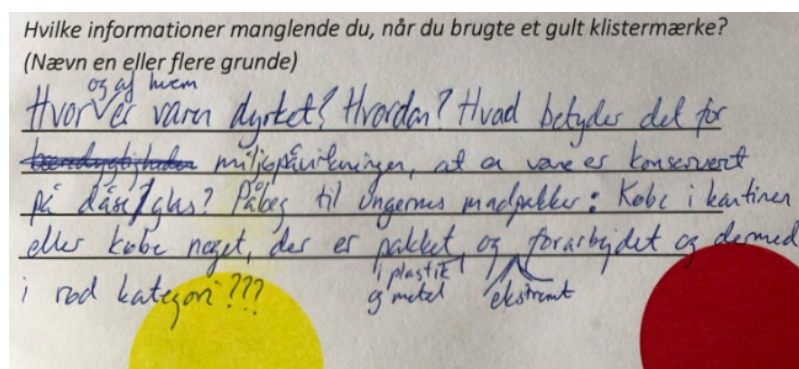 Hvilke informationer manglende du, når du brugte et gult klistermærke?
(Nævn en eller flere grunde)
og af hvem
Hvor er varen dyrket? Hvordan? Hvad betyder det for
bæredygtigheden miljøpåvirkningen, at en vare er konserveret
på dåse/glas? Pålæg til ungernes madpakker: Købe i kantinen
eller købe noget, der er pakket og forarbejdet og dermed
i plastik
og metal
ekstremt
i rød kategori???